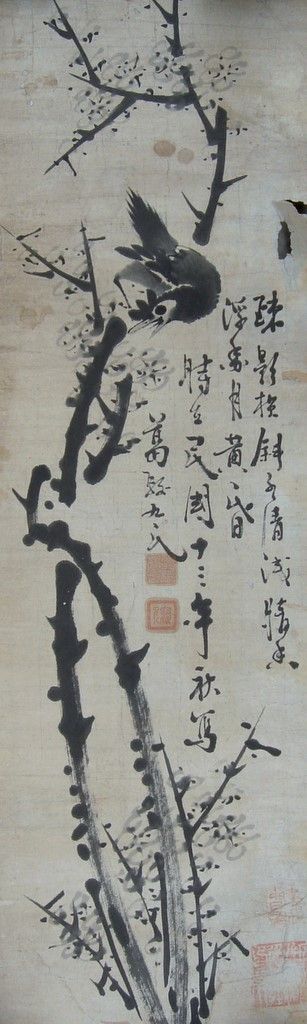 疎影横斜水清淺暗香
浮動月黄昏
時在民國十三年秋寫
葛九氏